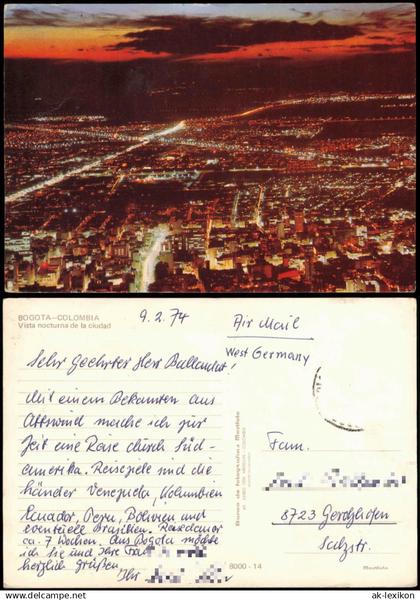 BOGOTA—COLOMBIA
Vista nocturna de la ciudad
9.2.74
Air Mail
West Germany
Sehr Geehrter Herr
Mit einem Bekannten aus
mache ich zur
Zeit eine Reise durch Süd-
amerika. Reiseziele sind die
Länder Venezuela, Kolumbien
Ecuador, Peru, Bolivien und
eventuelle Brasilien. Reisedauer
ca. 7 Wochen. Aus Bogota möchte
ich Sie und Ihre
herzlich grüßen.
Ihr
Fam.
8723 Gerolzhofen
Salzstr.
Banco de fotografias Movifoto
8000 - 14
Movifoto
ak-lexikon.cc